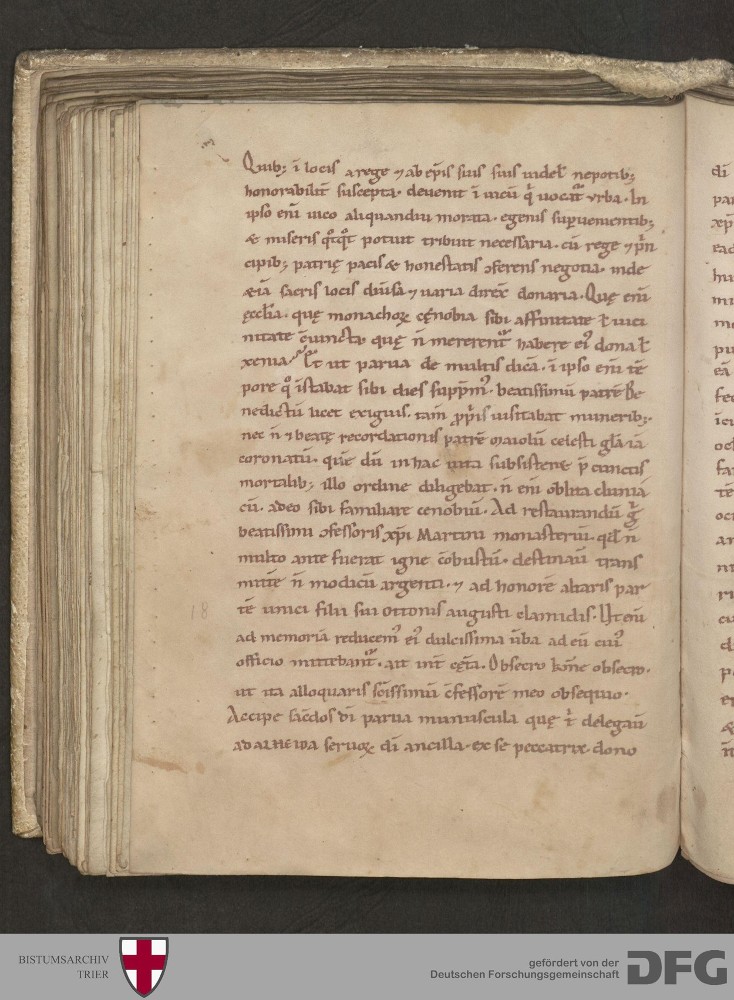 Quib; ī locis a rege ⁊ ab ep̄is suis suis uidel; nepotib;
honorabilit̄ suscepta. deuenit ī uicū q̄ uocat᷑ vrba. In
ipso eni uico aliquandiu morata. egenis supuenientib;
& miseris q̊tq̊t potuit tribuit necessaria. cū rege ⁊ p̄n
cipib; patrię pacis & honestatis ɔferens negotia. inde
&iā sacris locis diūsa ⁊ uaria direx̄ donaria. Quę eni
ęcclia. quę monachoꝝ cęnobia sibi affinitate ł uici
nitate ɔ̄iuncta quę n̄ mererent᷑ habere ei᷒ dona ł
xenia. Et ut parua de multis dicā. ī ipso eni tē
pore q̊ īstabat sibi dies supp̄m᷒. beatissimū patrē Be
nedictū licet exiguis. tam̄ ꝓpiis uisitabat munerib;.
nec n̄ ⁊ beatę recordationis patrē maiolū celesti gl̄a iā
coronatū. quē dū in hac uita subsistens p̄ cunctis
mortalib; illo ordine diligebat. n̄ eni oblita clunia
cū. adeo sibi familiare cenobiū. Ad restaurandū g̊
beatissimi ɔfessoris xp̄i Martini monasteriū. qđ n̄
multo ante fuerat igne cōbustū. destinauī trans
mittē n̄ modicū argenti. ⁊ ad honorē altaris par
tē unici filii sui ottonis augusti clamidis. Ut eni
ad memoriā reducem᷒ ei᷒ dulcissima ūba ad eū cui᷒
officio mittebant᷑. ait int̄ cęta. Obsecro bone obsecro.
ut ita alloquaris scīssimū ɔ̄fessorē meo obsequio.
Accipe sac̄dos dī parua munuscula quę t̄ delegaū
ADALHEIDA seruoꝝ dī ancilla. ex se peccatrix. dono
18
BISTUMSARCHIV
TRIER
gefördert von der
Deutschen Forschungsgemeinschaft
DFG